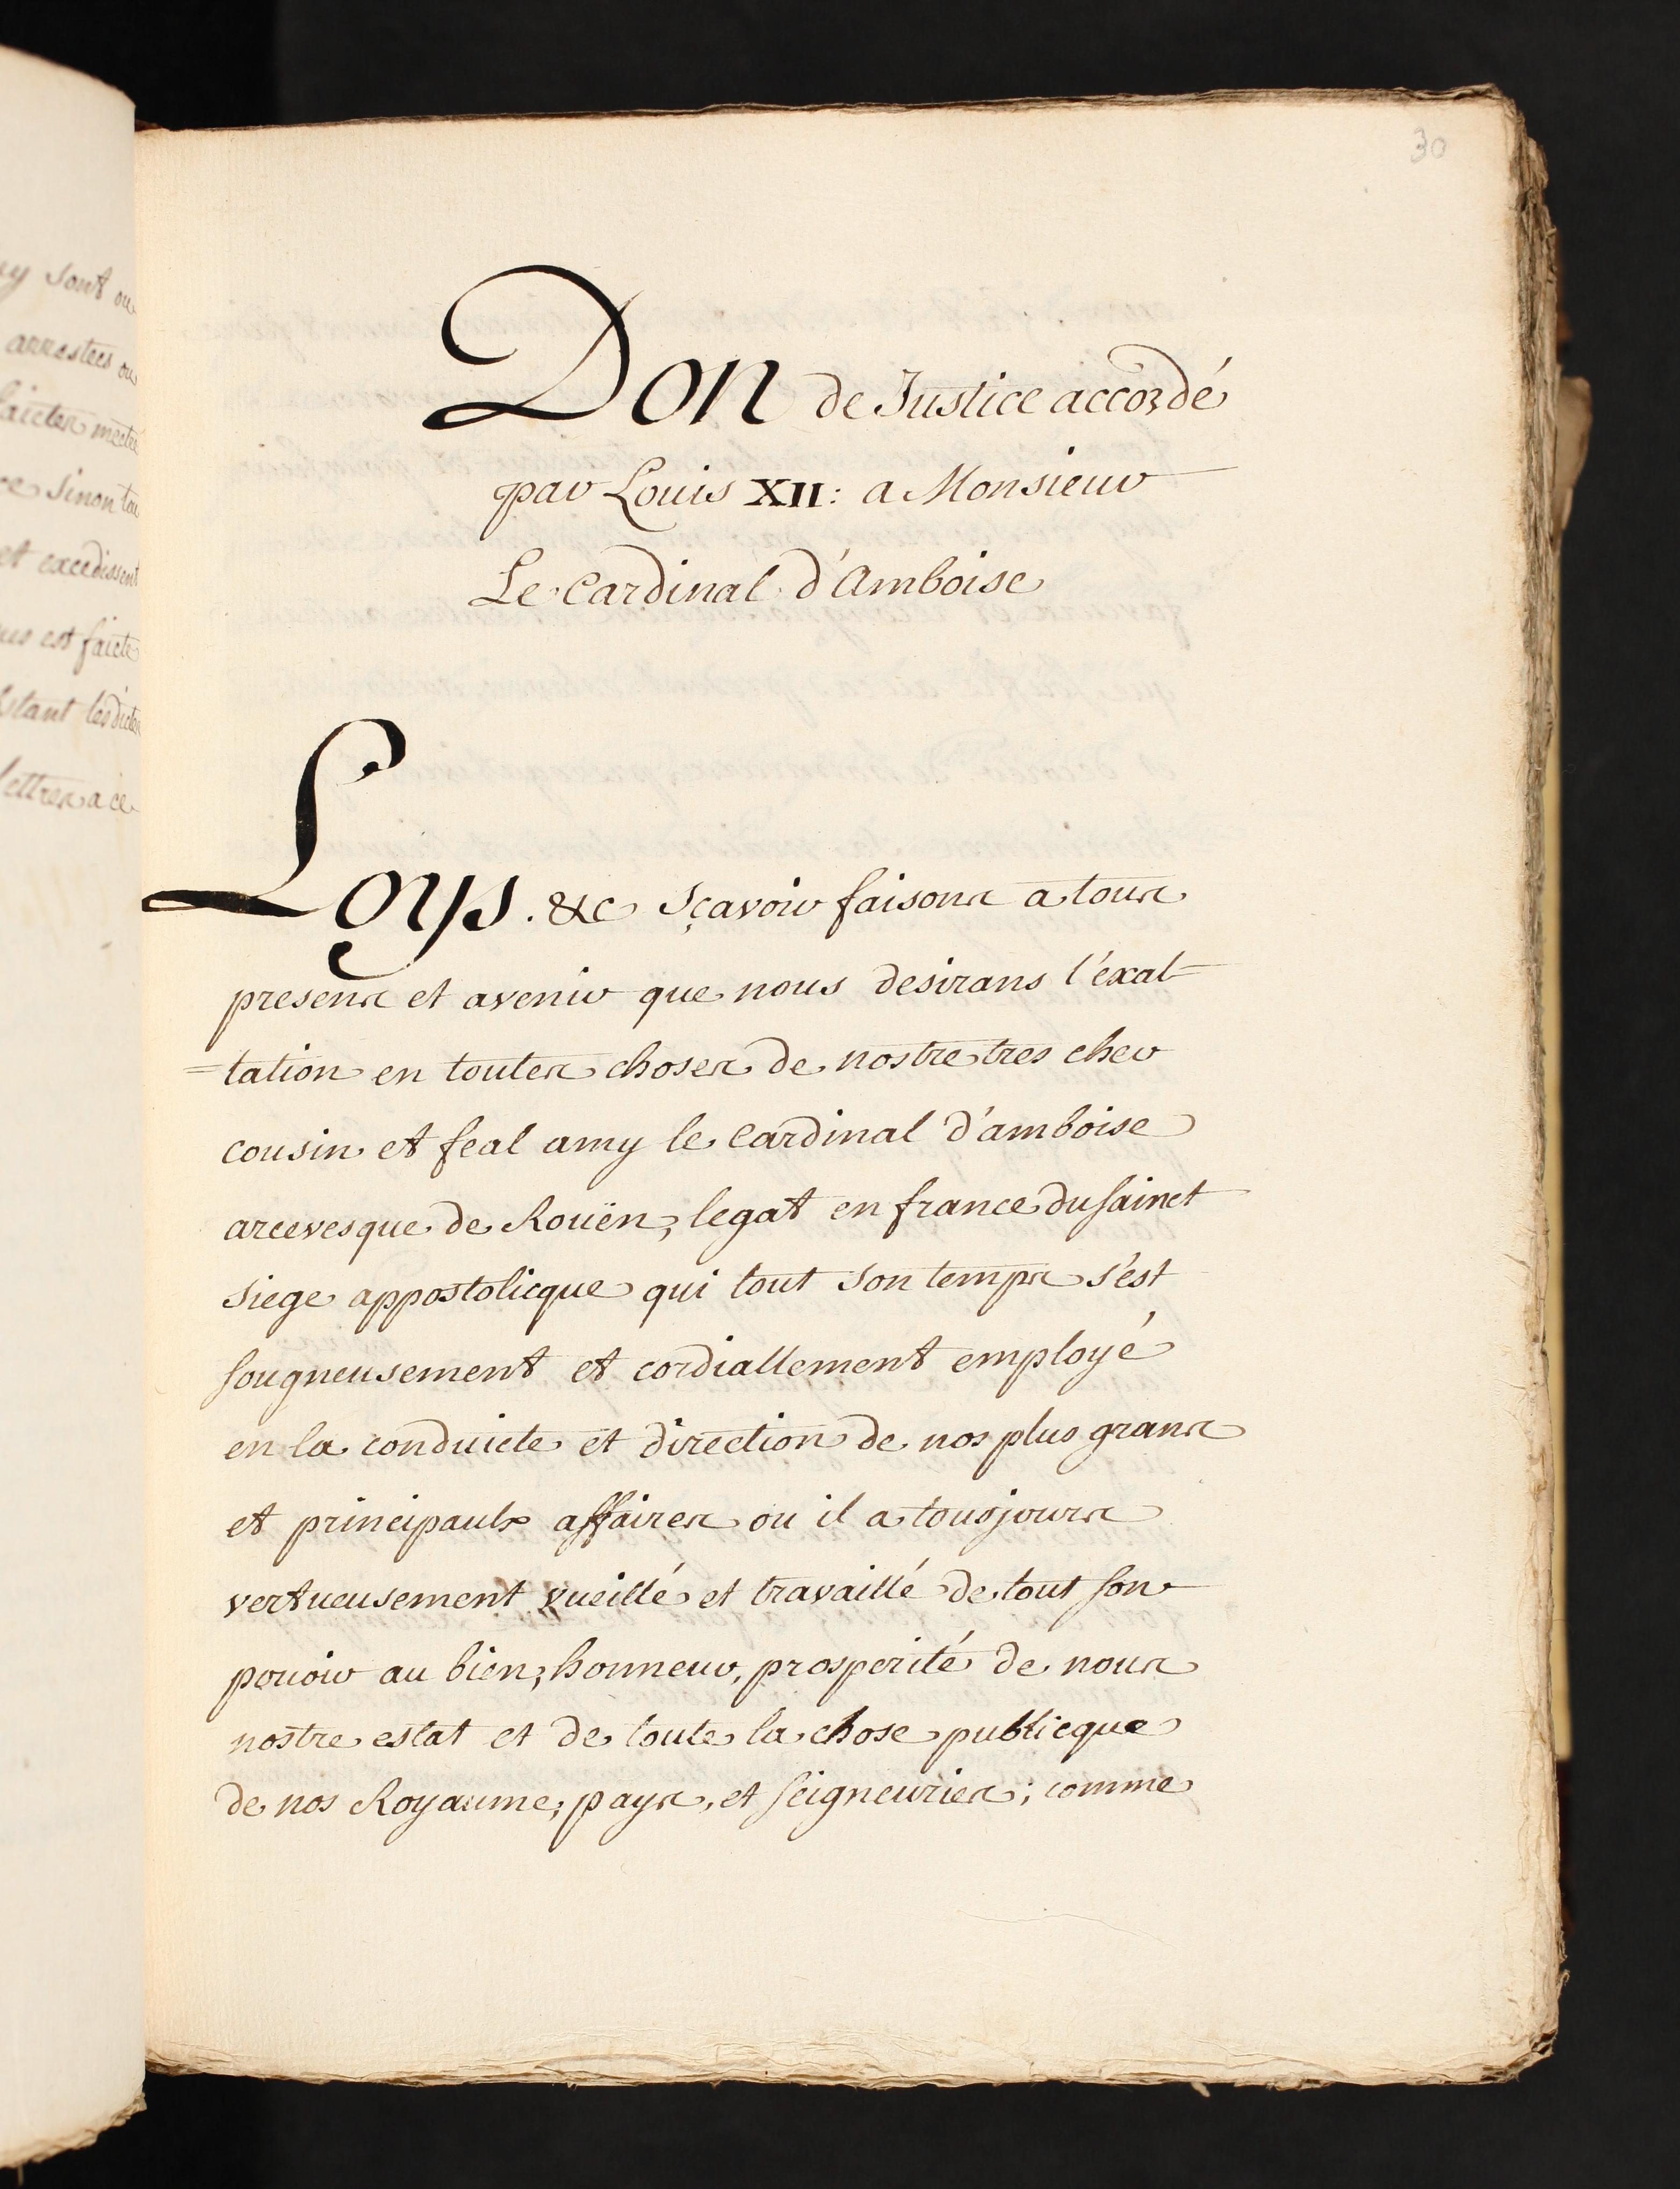 y sont ou
arrestees ou
sinon
et excedissent
est faicte
lesdictes
lettres a ce
30
Don de Justice accordé
par Louis XII: a Monsieur
Le Cardinal d'Amboise
Loys. &c sçavoir faisons a tous
presens et avenir que nous desirans l'éxal=
=tation en toutes choses de nostre tres cher
cousin et feal amy le Cardinal d'amboise
arcevesque de Roüen, legat en france du sainct
siege appostolicque qui tout son temps s'est
sougneusement et cordiallement employé
en la conduicte et direction de nos plus grans
et principaulx affaires ou il a tousjours
vertueusement vueillé et travaillé de tout son
pouoir au bien, honneur, prosperité de nous
nostre estat et de toute la chose publicque
de nos Royaume, pays, et seigneuries; comme